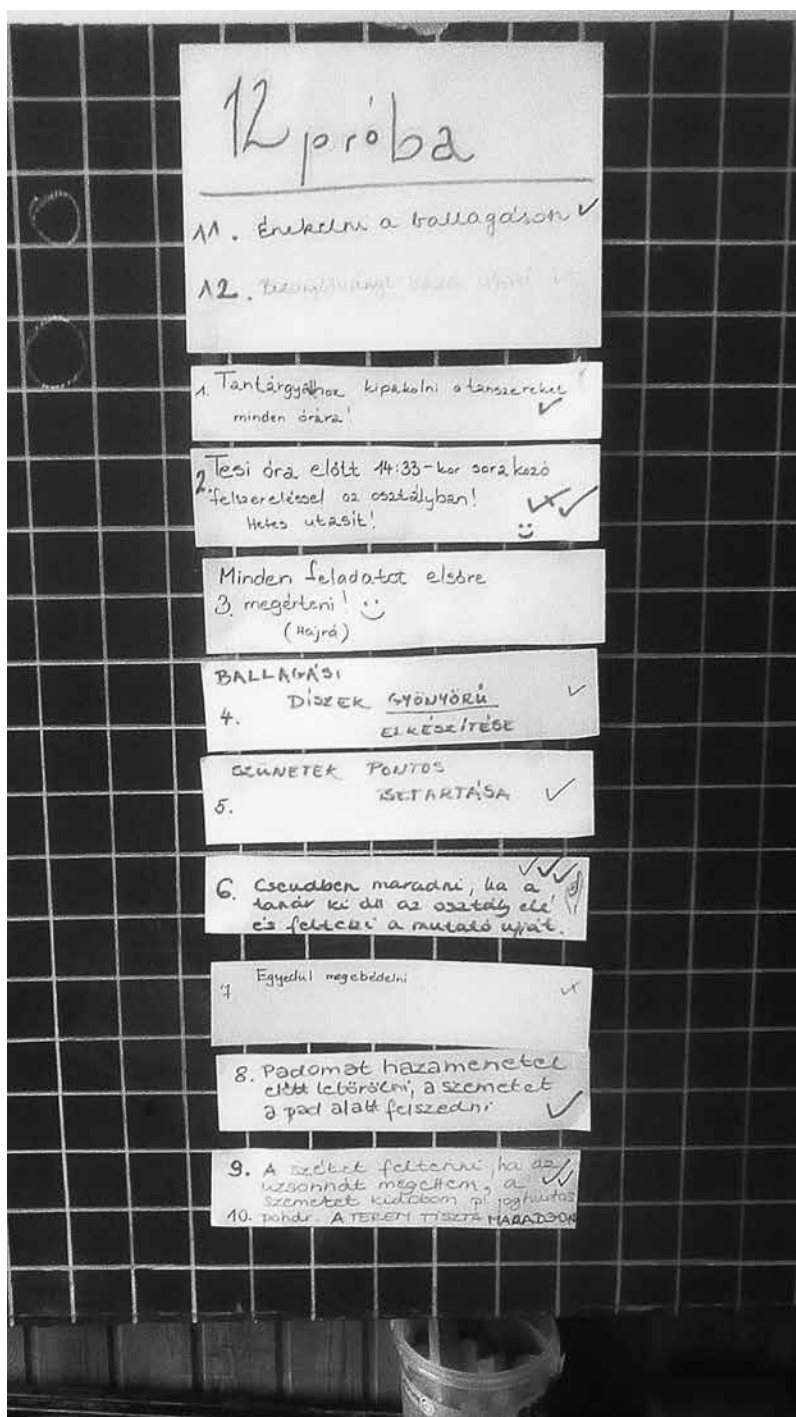 12 próba
11. Énekelni a ballagáson ✓
12. Bizonyítványt haza vinni ✓
1. Tantárgyakhoz kipakolni a tanszereket
minden órára! ✓
2. Tesi óra előtt 14:33-kor sorakozó
felszereléssel az osztályban!
Hetes utasít!
Minden feladatot elsőre
3. megérteni! :)
(Hajrá)
BALLAGÁSI
4. DÍSZEK GYÖNYÖRŰ
ELKÉSZÍTÉSE
SZÜNETEK PONTOS
5. BETARTÁSA ✓
6. Csendben maradni, ha a
tanár ki áll az osztály elé
és felteszi a mutató ujját.
7 Egyedül megebédelni
8. Padomat hazamenetel
előtt letörölni, a szemetet
a pad alatt felszedni ✓
9. A széket feltenni, ha az
uzsonnát megettem, a
szemetet kidobom pl joghurtos
10. pohár. A TEREM TISZTA MARADJON